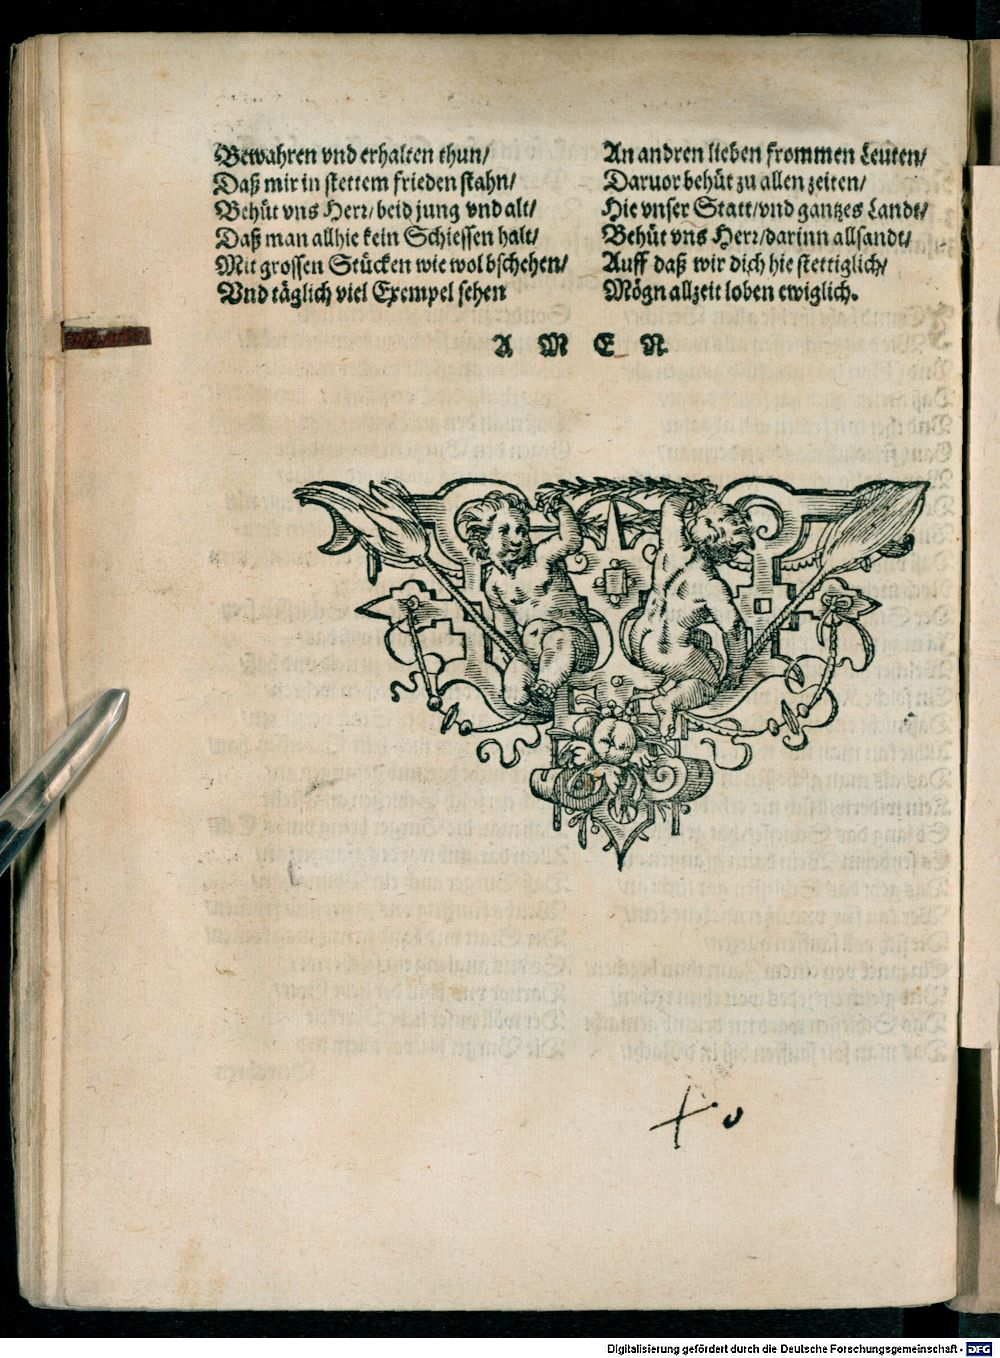 Bewahren vnd erhalten thun/
Daß mir in stettem frieden stahn/
Behüt vns Herr/ beid jung vnd alt/
Daß man allhie kein Schiessen halt/
Mit grossen Stücken wie wol bschehen/
Vnd täglich viel Exempel sehen
An andren lieben frommen Leuten/
Daruor behüt zu allen zeiten/
Hie vnser Statt/ vnd gantzes Landt/
Behüt vns Herr/ darinn allsandt/
Auff daß wir dich hie stettiglich/
Mögn allzeit loben ewiglich.
A M E N.
Digitalisierung gefördert durch die Deutsche Forschungsgemeinschaft - DFG